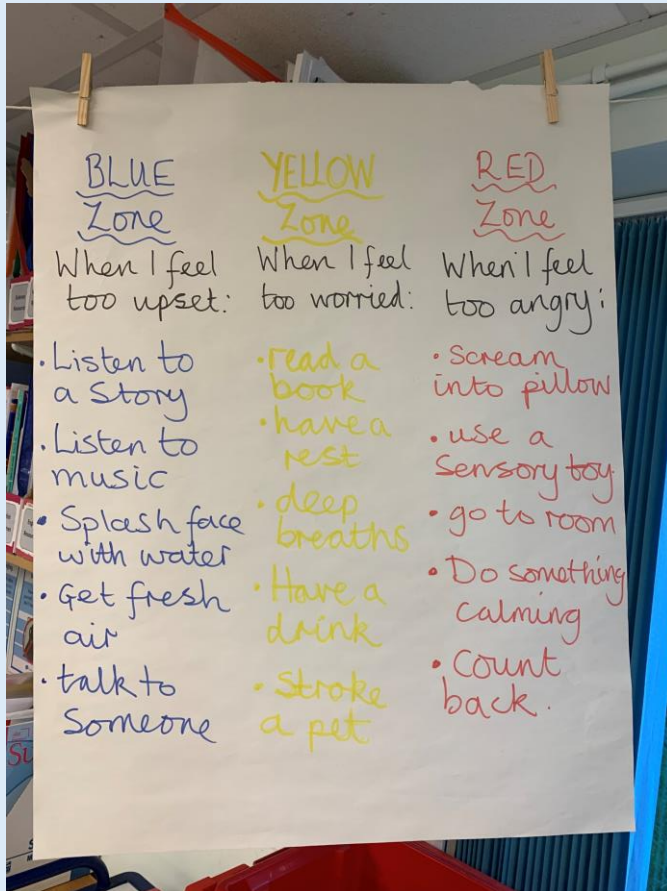 BLUE
Zone
When I feel
too upset:
• Listen to
a Story
• Listen to
music
• Splash face
with water
• Get fresh
air
• talk to
Someone
YELLOW
Zone
When I feel
too worried:
• read a
book
• have a
rest
• deep
breaths
• Have a
drink
• Stroke
a pet
RED
Zone
When I feel
too angry:
• Scream
into pillow
• use a
Sensory toy
• go to room
• Do something
calming
• Count
back.